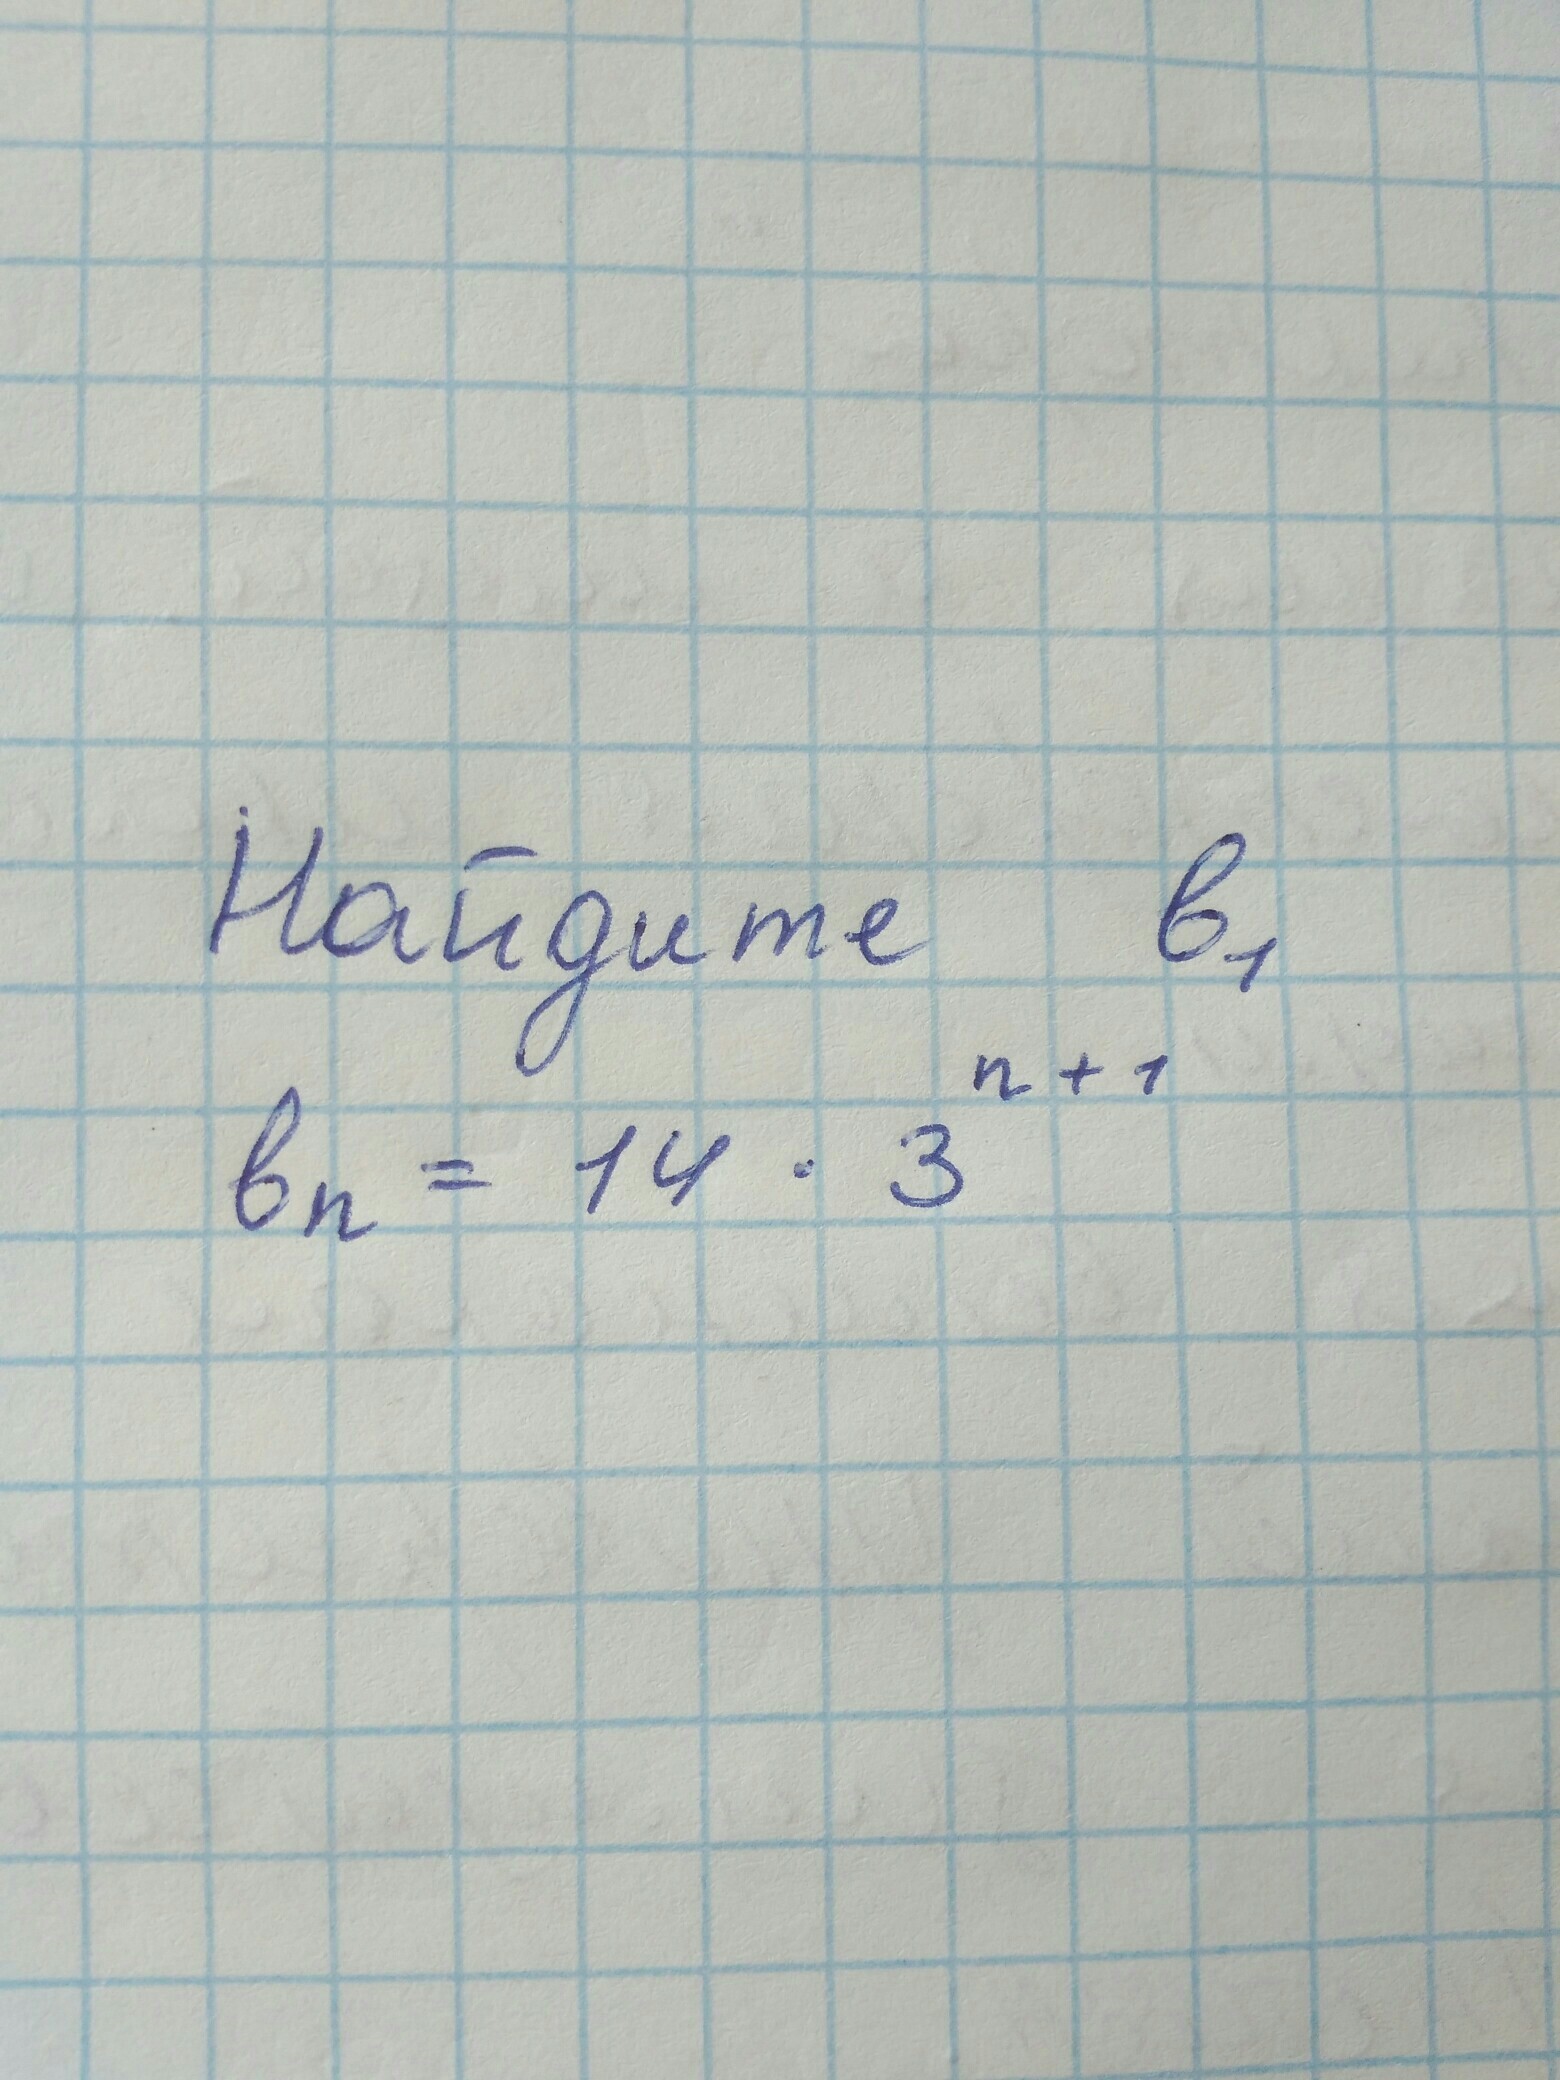 Найдите b₁
bₙ = 14 · 3ⁿ⁺¹